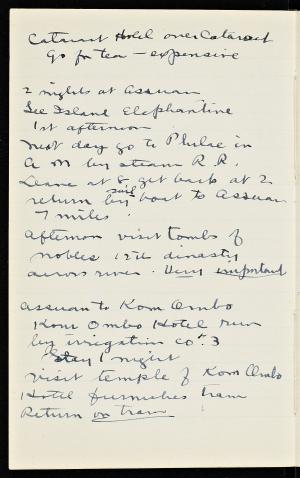 Cataract Hotel over Cataract
Go for tea – expensive
2 nights at Assuan
See Island Elephantine
1st afternoon
Next day go to Philae in
A M by steam R.R.
Leave at 8 get back at 2
return by sail boat to Assuan
7 miles.
Afternoon visit tombs of
nobles 12th dinasty
across river. Very important
Assuan to Kom Ombo
Kom Ombo Hotel run
by irrigation co.
Stay 1 night
Visit temple of Kom Ombo
Hotel furnishes tram
Return on tram